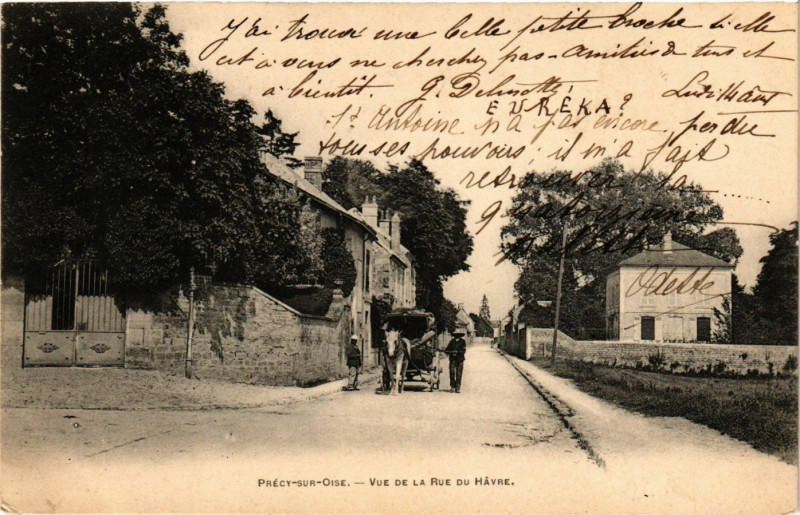 J'ai trouvé une belle petite broche si elle
est à vous ne cherchez pas - Amitiés de tous et
à bientôt. G. Delmotte
EURÉKA?
St Antoine n'a pas encore perdu
tous ses pouvoirs; il m'a fait
retrouver la
quatorzième
Odette
PRÉCY-SUR-OISE. — VUE DE LA RUE DU HÂVRE.